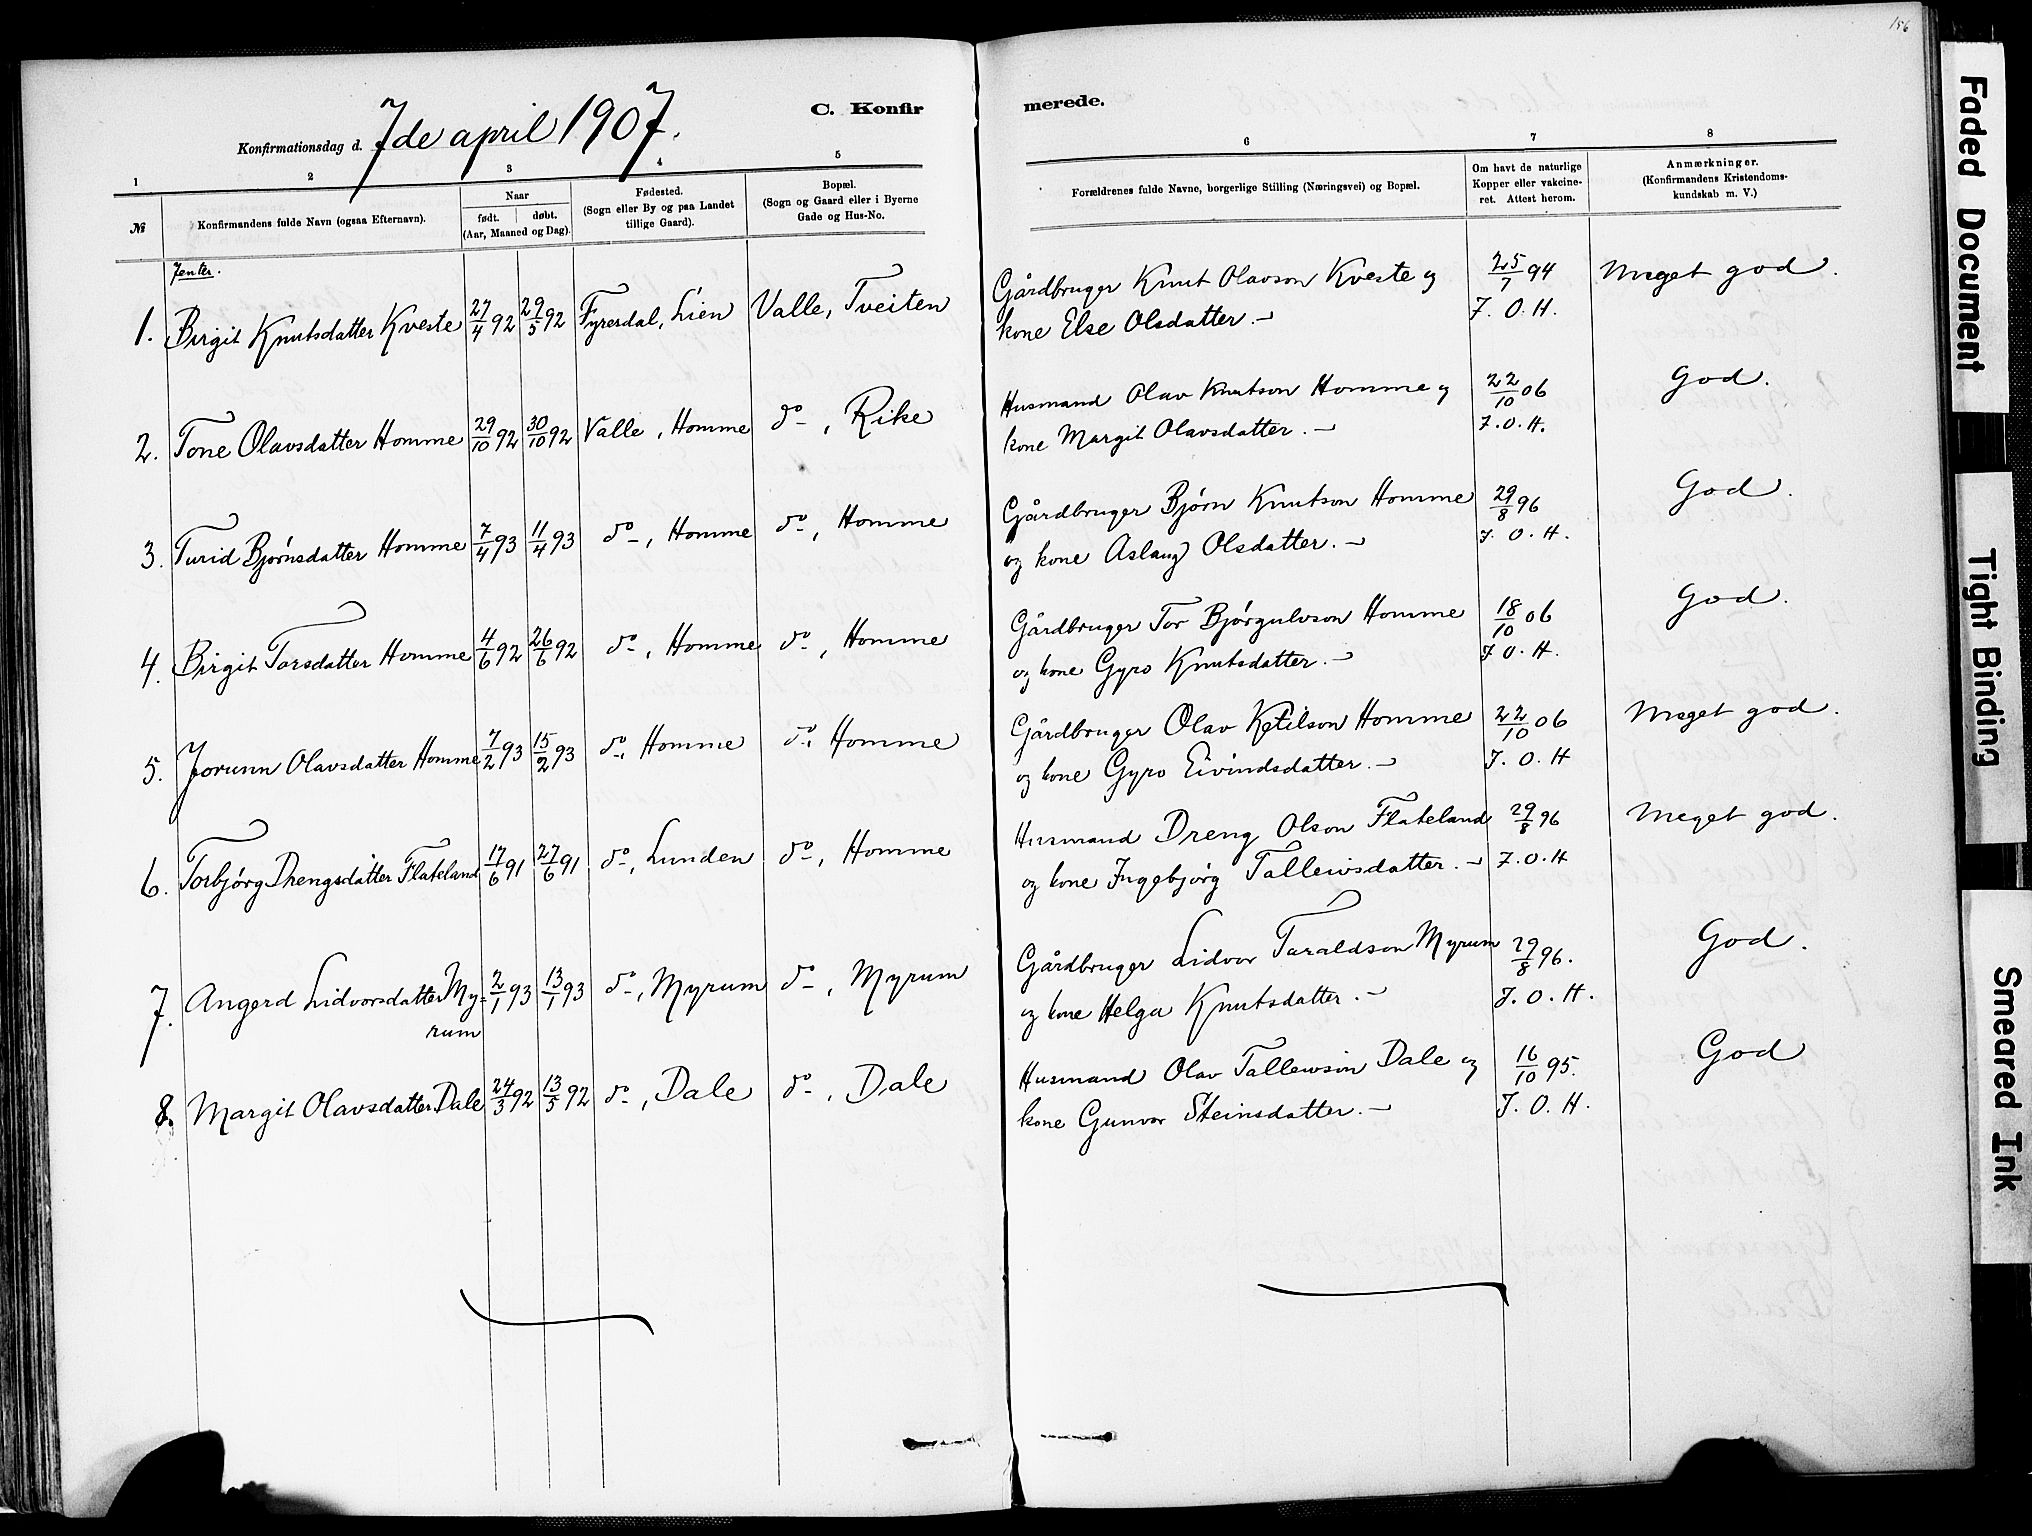 156
C. Konfirmerede.
Konfirmationsdag d. 7de april 1907.
1 2 3 4 5 6 7 8
№
Konfirmandens fulde Navn (ogsaa Efternavn).
Naar
født. døbt.
(Aar, Maaned og Dag).
Fødested.
(Sogn eller By og paa Landet
tillige Gaard).
Bopæl.
(Sogn og Gaard eller i Byerne
Gade og Hus-No.
Forældrenes fulde Navne, borgerlige Stilling (Næringsvei) og Bopæl.
Om havt de naturlige
Kopper eller vakcine-
ret. Attest herom.
Anmærkninger.
(Konfirmandens Kristendoms-
kundskab m. V.)
Jenter.
1. Birgit Knutsdatter Kveste 27/4 92 29/5 92 Fyresdal, Lien Valle, Tveiten Gårdbruger Knut Olavson Kveste og 25/7 94 Meget god.
kone Else Olsdatter.- J. O. H.
2. Tone Olavsdatter Homme 29/10 92 30/10 92 Valle, Homme do, Rike Husmand Olav Knutson Homme og 22/10 06 God.
kone Margit Olavsdatter.- J. O. H.
3. Turid Bjørnsdatter Homme 7/4 93 11/4 93 do, Homme do, Homme Gårdbruger Bjørn Knutson Homme 29/8 96 God.
og kone Aslaug Olsdatter.- J. O. H.
4. Birgit Torsdatter Homme 4/6 92 26/6 92 do, Homme do, Homme Gårdbruger Tor Bjørgulvson Homme 18/10 06 God.
og kone Gyro Knutsdatter.- J. O. H.
5. Jorunn Olavsdatter Homme 7/2 93 15/2 93 do, Homme do, Homme Gårdbruger Olav Ketilson Homme 22/10 06 Meget god.
og kone Gyro Eivindsdatter.- J. O. H
6. Torbjørg Drengsdatter Flateland 17/6 91 27/6 91 do, Lunden do, Homme Husmand Dreng Olson Flateland 29/8 96 Meget god.
og kone Ingebjørg Talleivsdatter.- J. O. H
7. Angerd Lidvorsdatter My- 2/1 93 13/1 93 do, Myrum do, Myrum Gårdbruger Lidvor Taraldson Myrum 29/8 96. God.
rum og kone Helga Knutsdatter.- J. O. H.
8. Margit Olavsdatter Dale 24/3 92 13/5 92 do, Dale do, Dale Husmand Olav Talleivson Dale og 16/10 95. God
kone Gunvor Steinsdatter.- J. O. H.
Faded Document
Tight Binding
Smeared Ink